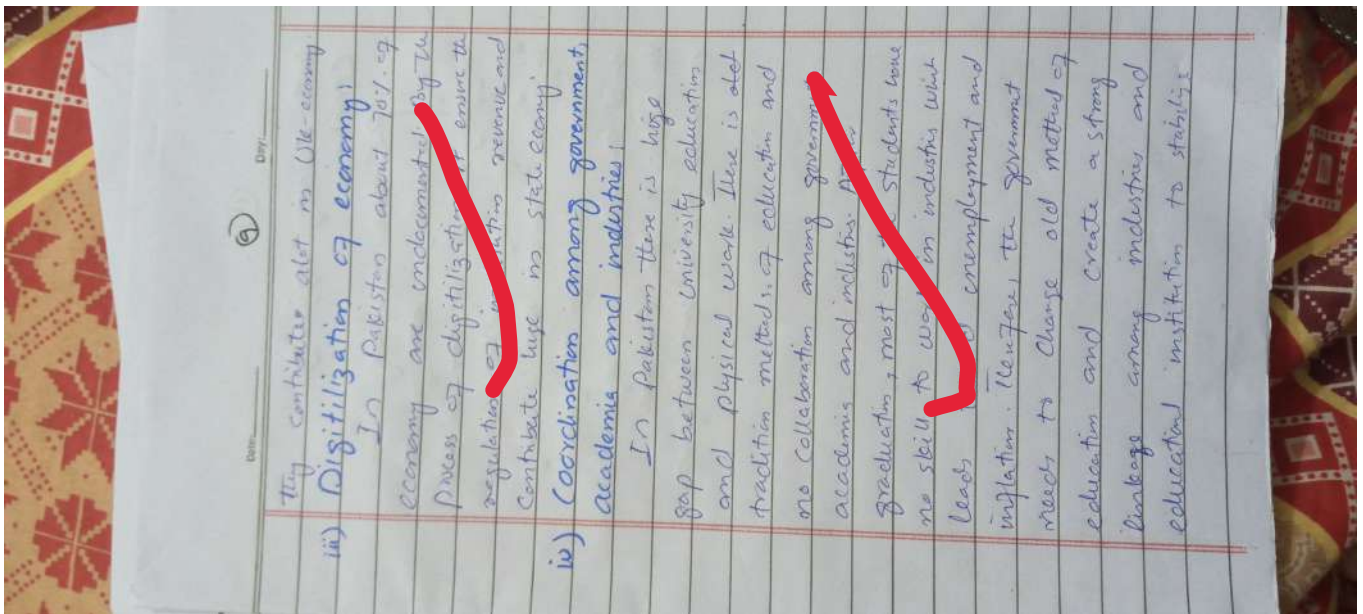 Date: Day:
9
they contributes alot in UK-economy.
iii) Digitilization of economy:
In Pakistan about 70% of
economy are undocumented. By the
process of digitilization ensure the
regulation of revenue and
contribute huge in state economy.
iv) Coordination among government,
academia and industries:
In Pakistan there is huge
gap between university education
and physical work. There is old
tradition methods of education and
no collaboration among government
academia and industris.
graduation, most of the students have
no skill to work in industris which
leads unemployment and
inflation. Therefore, the government
needs to change old method of
education and create a strong
linkage among industries and
educational institution to stability